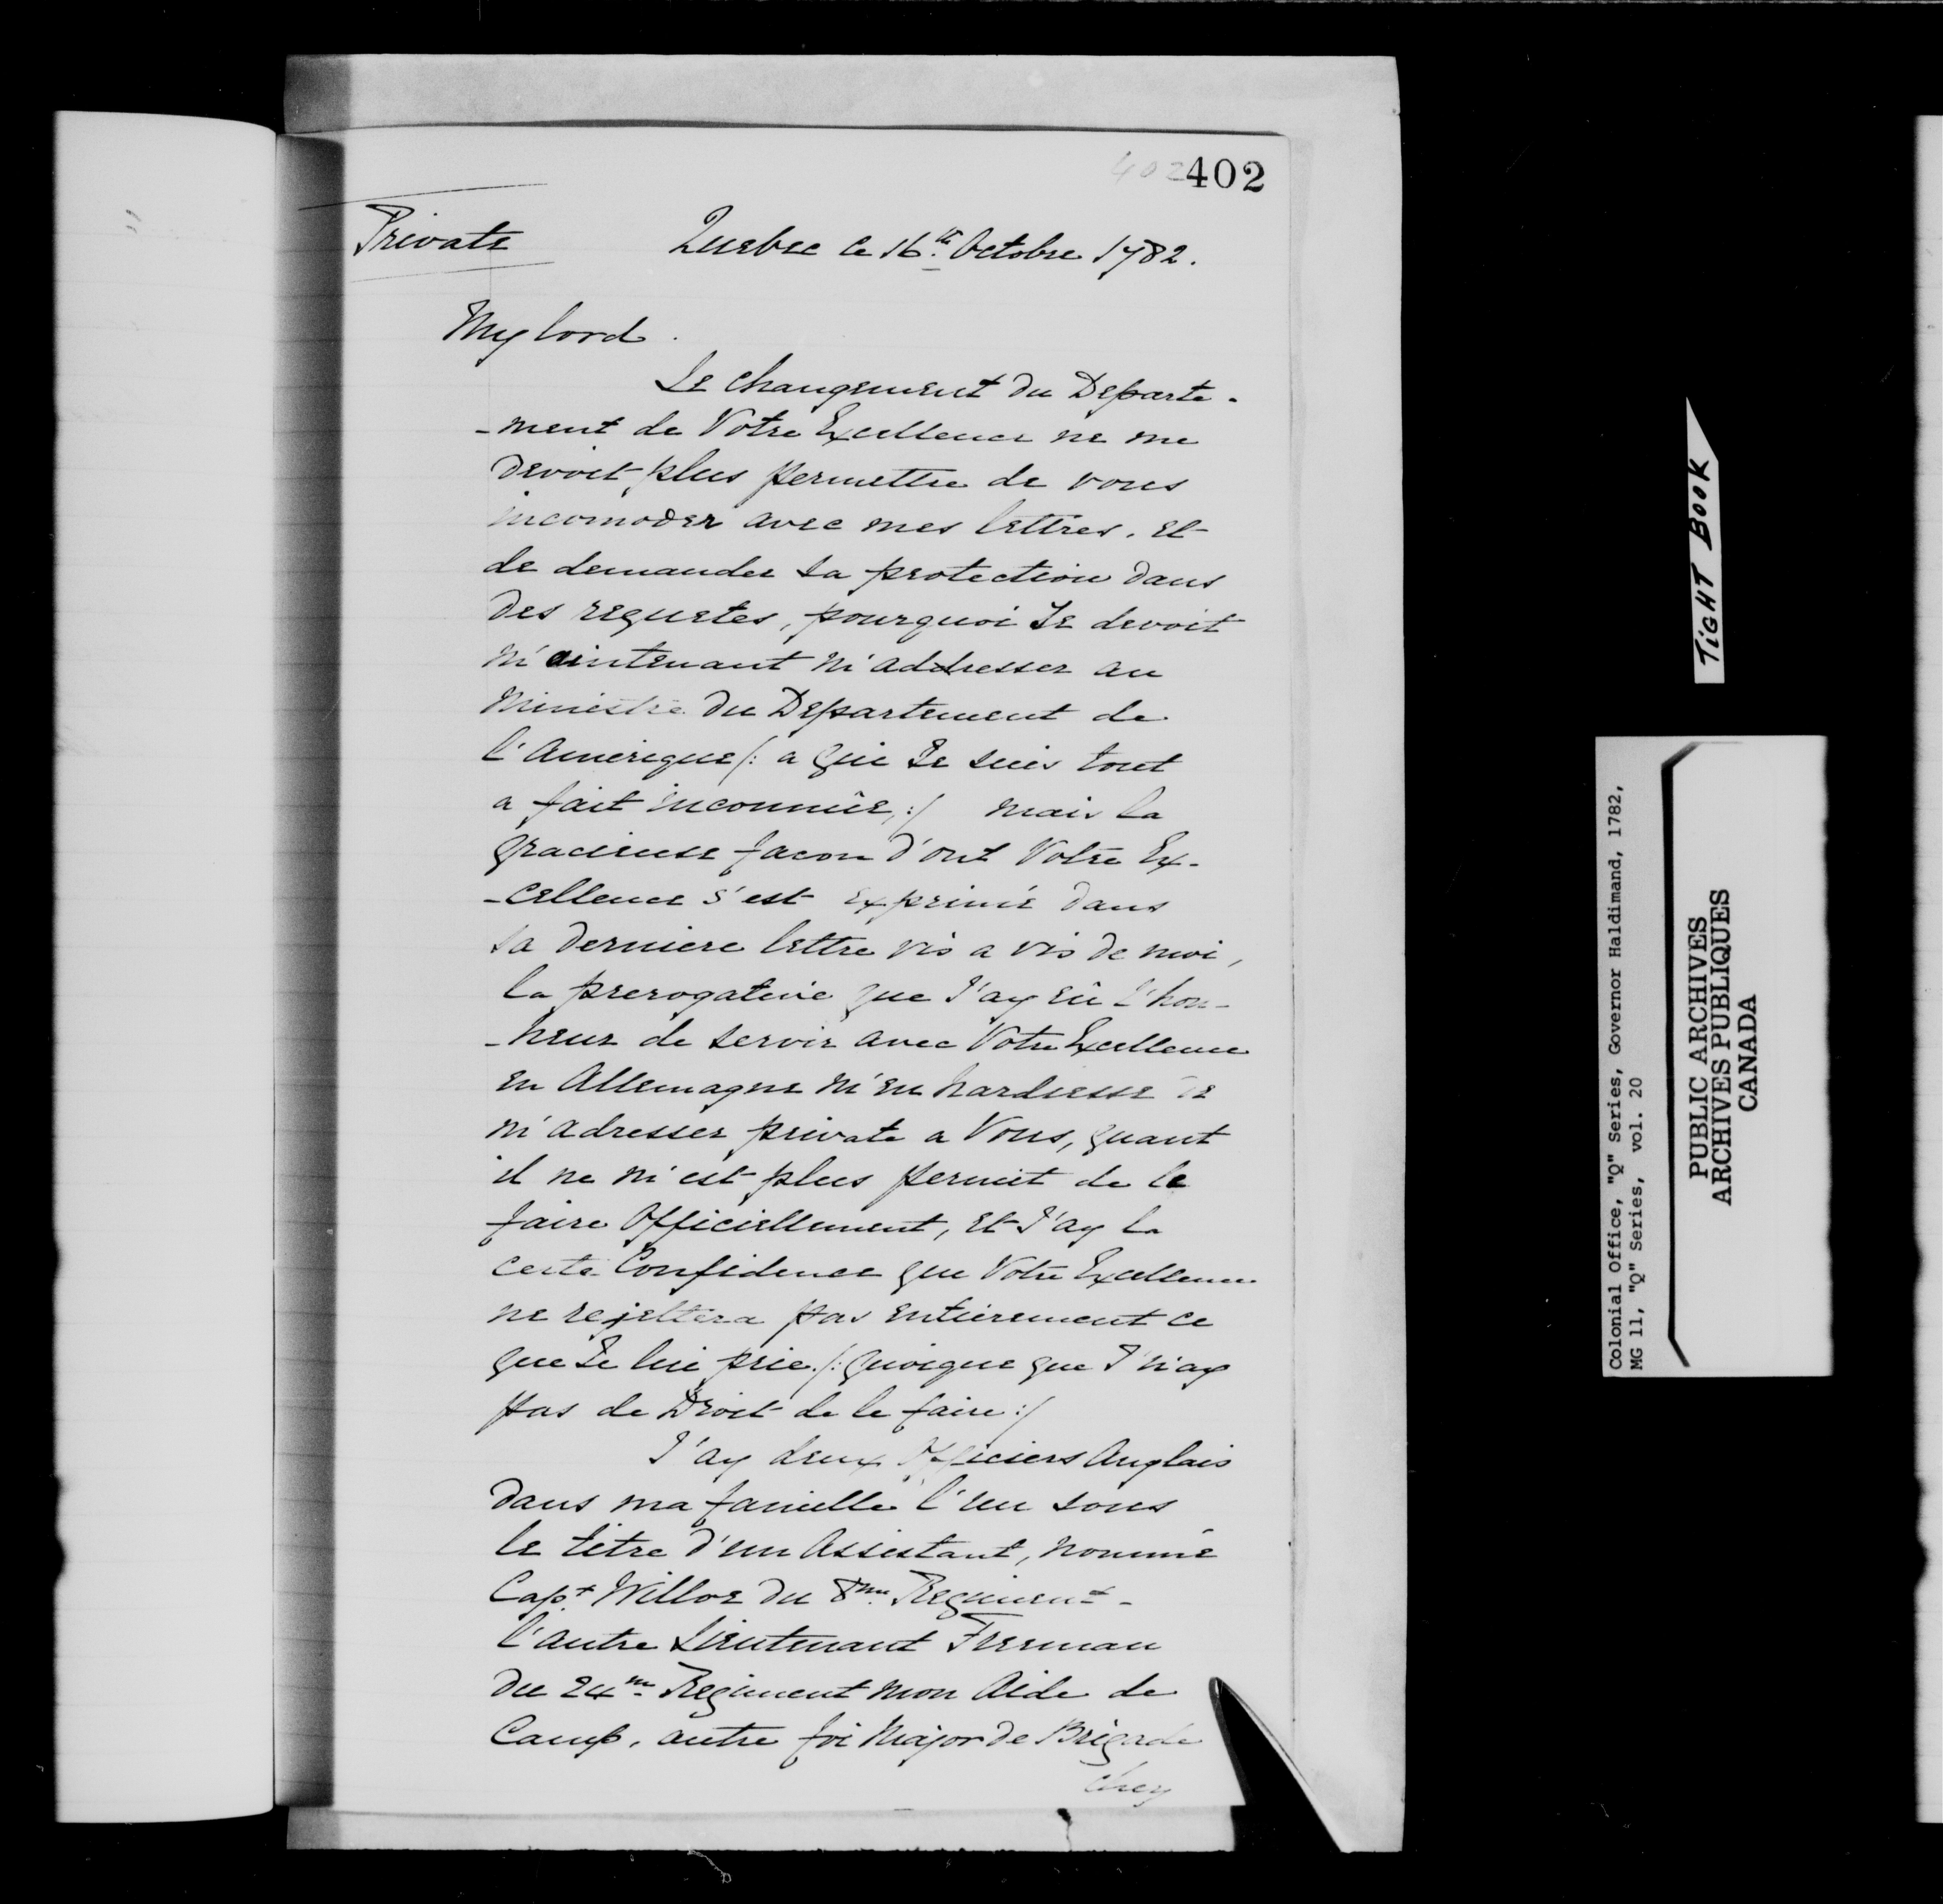 402 402
Private
Quebec le 16th. Octobre 1782.
My lord.
Le changement du Departe-
-ment de Votre Excellence ne me
devoit plus permettre de vous
incomoder avec mes lettres. et
de demander sa protection dans
des requetes, pourquoi Je devoit
m'aintenant m'addresser au
Ministre du Departement de
l'Amerique /: a qui Je suis tout
a fait inconnûe, :/ mais la
gracieuse facon d'ont Votre Ex-
-cellence s'est exprimé dans
sa derniere lettre vis a vis de moi,
la prerogative que J'ay eû l'hon-
-neur de servir avec Votre Excellence
en Allemagne m'en hardiesse de
m'adresser private a Vous, quant
il ne m'est plus permit de le
faire Officiellement, et J'ay la
certe Confidence que Votre Excellence
ne rejettera pas entierement ce
que Je lui prie. /: quoique que J'n'ay
pas de Droit de le faire :/
J'ay deux Officiers Anglais
dans ma famille l'un sous
le titre d'un Assistant, nommé
Capt. Willoe du 8me. Regiment -
l'autre Lieutenant Freeman
du 24me Regiment mon Aide de
Camp, autre foi Major de Brigade
chez
TIGHT BOOK
Colonial Office, "Q" Series, Governor Haldimand, 1782,
MG 11, "Q" Series, vol. 20
PUBLIC ARCHIVES
ARCHIVES PUBLIQUES
CANADA